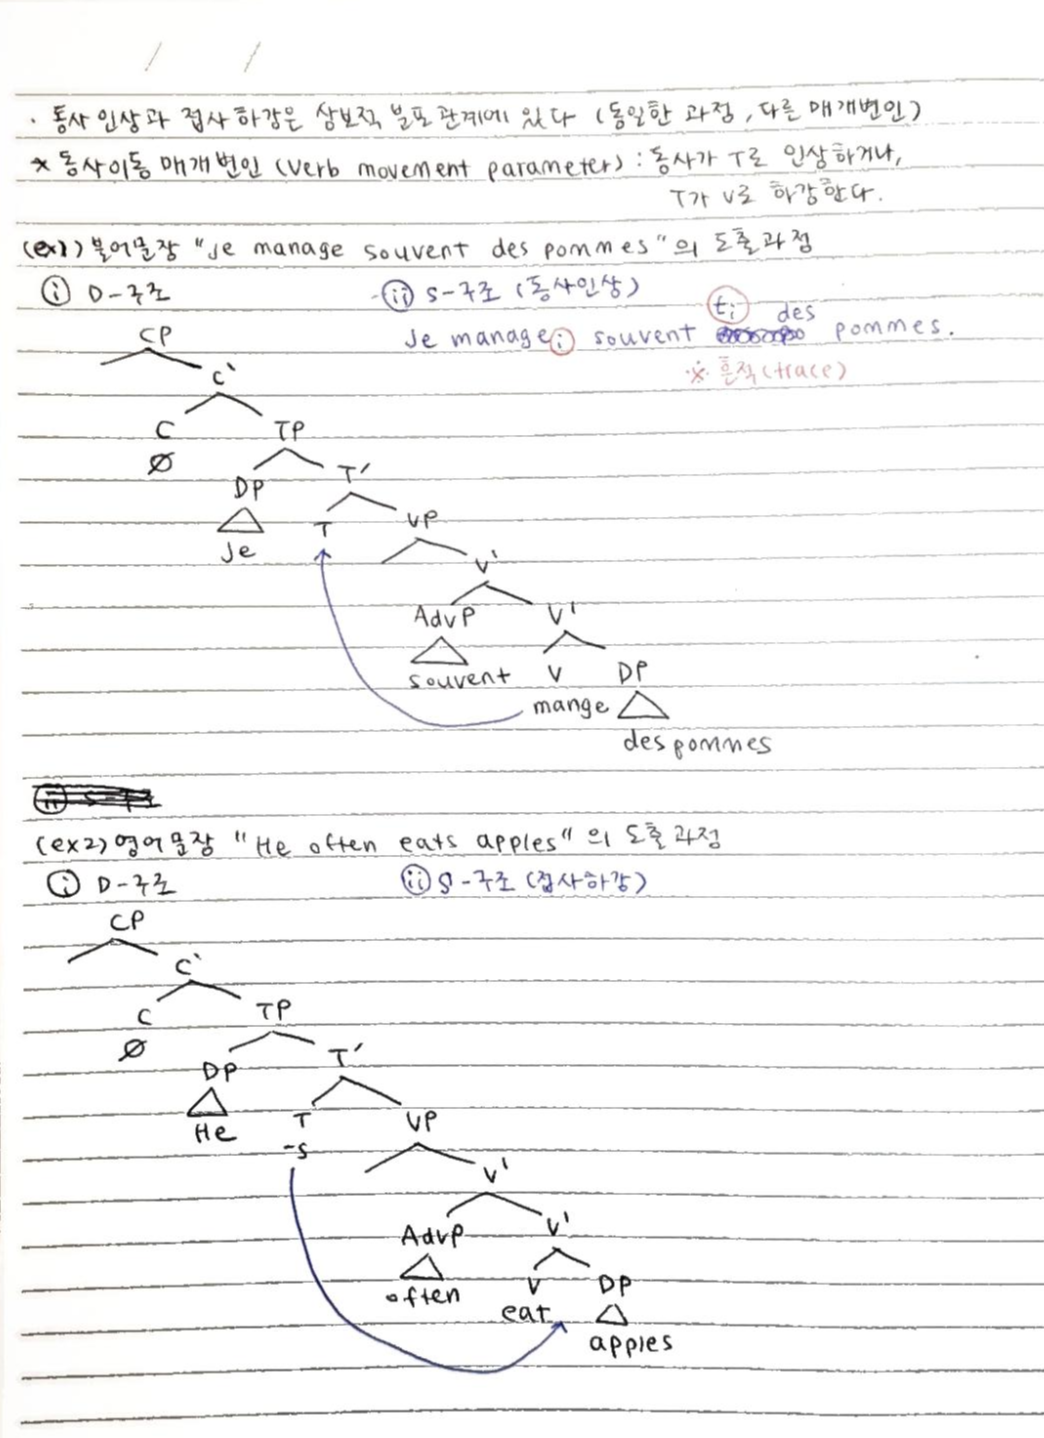 · 동사 인상과 접사 하강은 상보적 분포 관계에 있다 (동일한 과정, 다른 매개변인)
* 동사이동 매개변인 (verb movement parameter) : 동사가 T로 인상하거나,
T가 V로 하강한다.
(ex1) 불어문장 "Je manage souvent des pommes"의 도출과정
ⓘ D-구조
ⓘⓘ S-구조 (동사인상)
Je manage i souvent ti des pommes.
※ 흔적(trace)
CP
C'
C TP
∅
DP T'
Je T VP
V'
AdvP V'
souvent V DP
mange
des pommes
(ex2) 영어문장 "He often eats apples"의 도출과정
ⓘ D-구조 ⓘⓘ S-구조 (접사하강)
CP
C'
C TP
∅
DP T'
He T VP
-s
V'
AdvP V'
often V DP
eat
apples